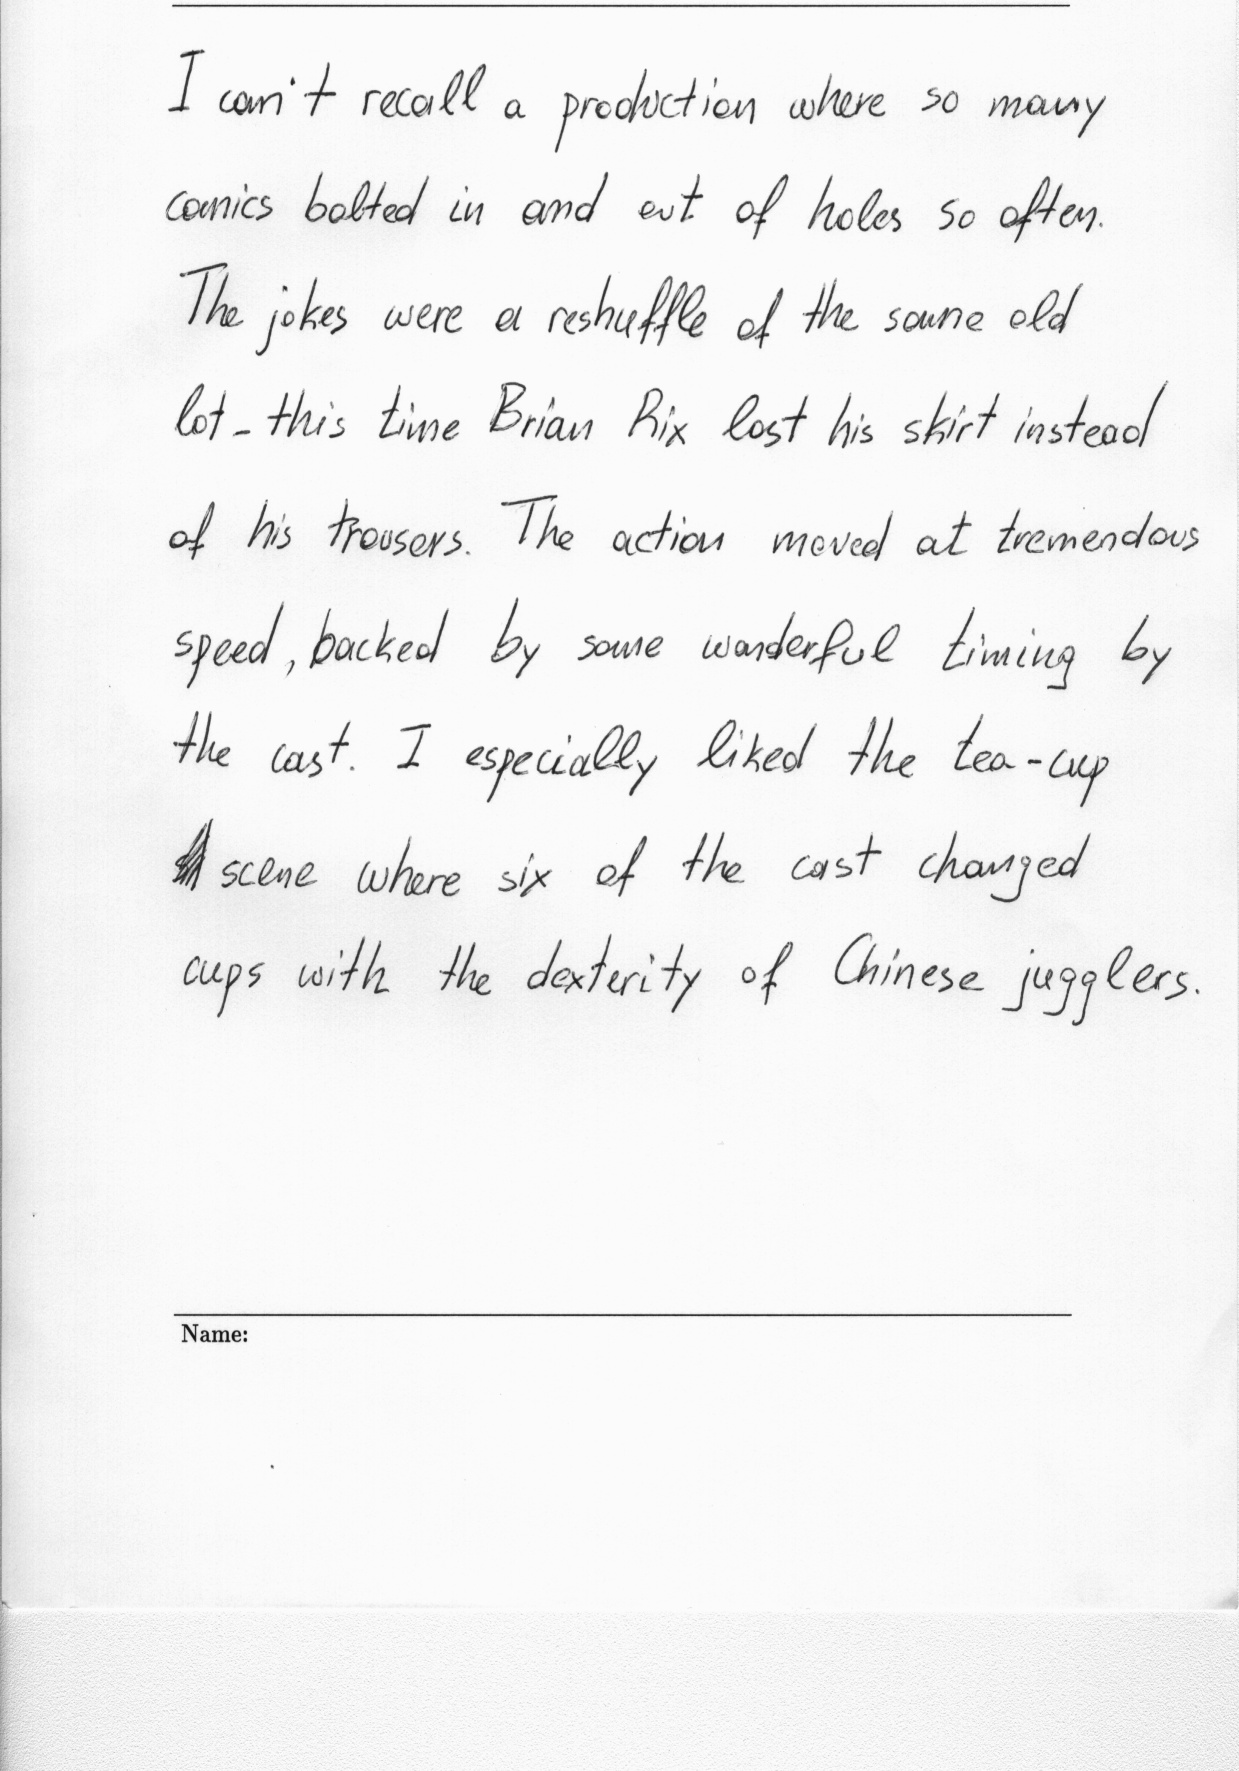 I can't recall a production where so many
comics bolted in and out of holes so often.
The jokes were a reshuffle of the same old
lot - this time Brian Rix lost his skirt instead
of his trousers. The action moved at tremendous
speed, backed by some wonderful timing by
the cast. I especially liked the tea-cup
scene where six of the cast changed
cups with the dexterity of Chinese jugglers.
Name: